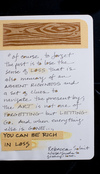 "Of course to forget
the past is to lose the
sense of LOSS that is
also memory of an
ABSENT RICHNESS and
a set of clues to
navigate the present by;
the ART is not one of
FORGETTING but LETTING
GO. And when everything
else is GONE,
YOU CAN BE RICH
IN LOSS.
Rebecca Solnit